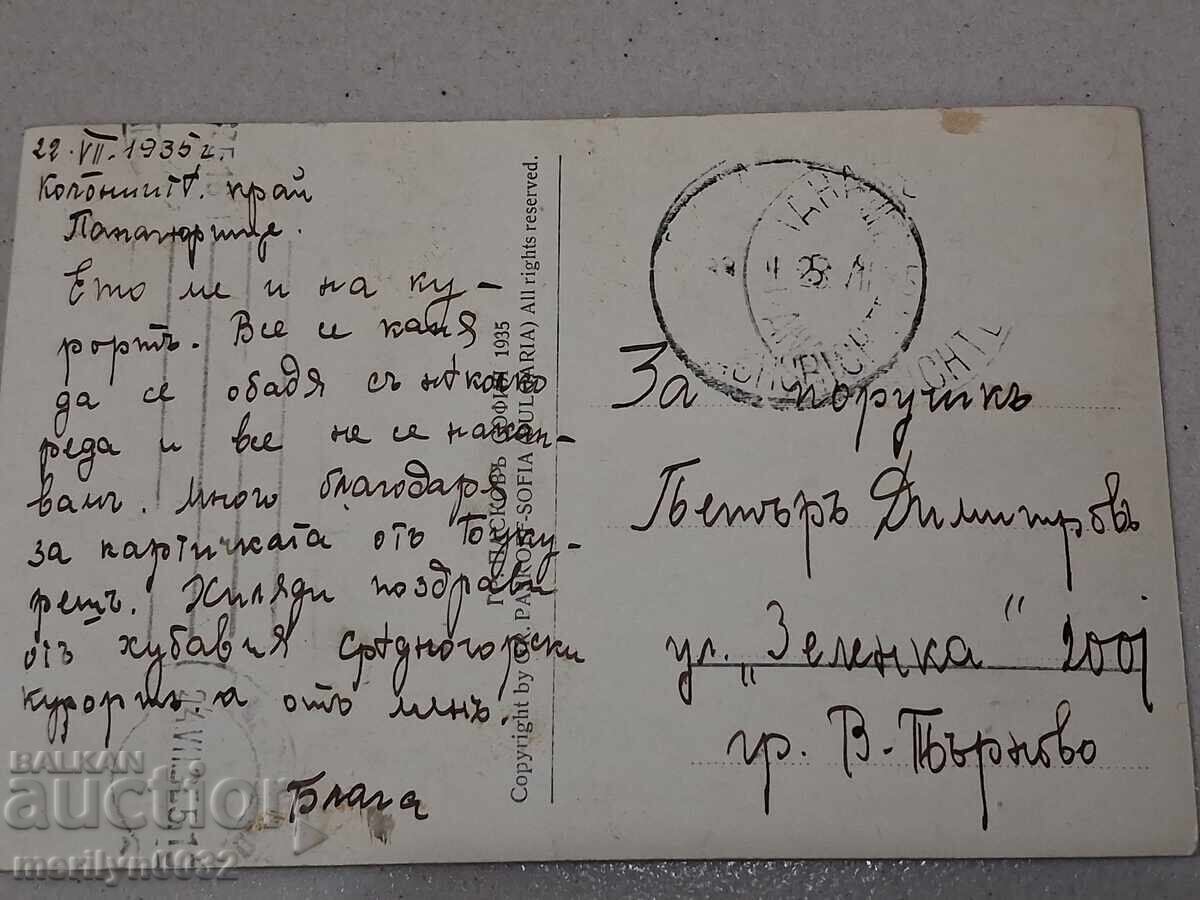 22.VII.1935 г.
Колониитѣ. край
Панагюрище.
Ето ме и на ку-
рортъ. Все се каня
да се обадя съ нѣколко
реда и все не се накан-
вамъ. Много благодаря
за картичката отъ Буку-
рещъ. Хиляди поздрави
отъ хубавия срѣдногорски
курортъ, а отъ менъ.
Блага
ПАСКОВЪ СОФИЯ 1935
Copyright by GR. PASKOFF-SOFIA (BULGARIA) All rights reserved.
За поручикъ
Петъръ Димитровъ
ул. „Зеленка“
гр. В-Търново
BALKAN
auction
merilyn0032